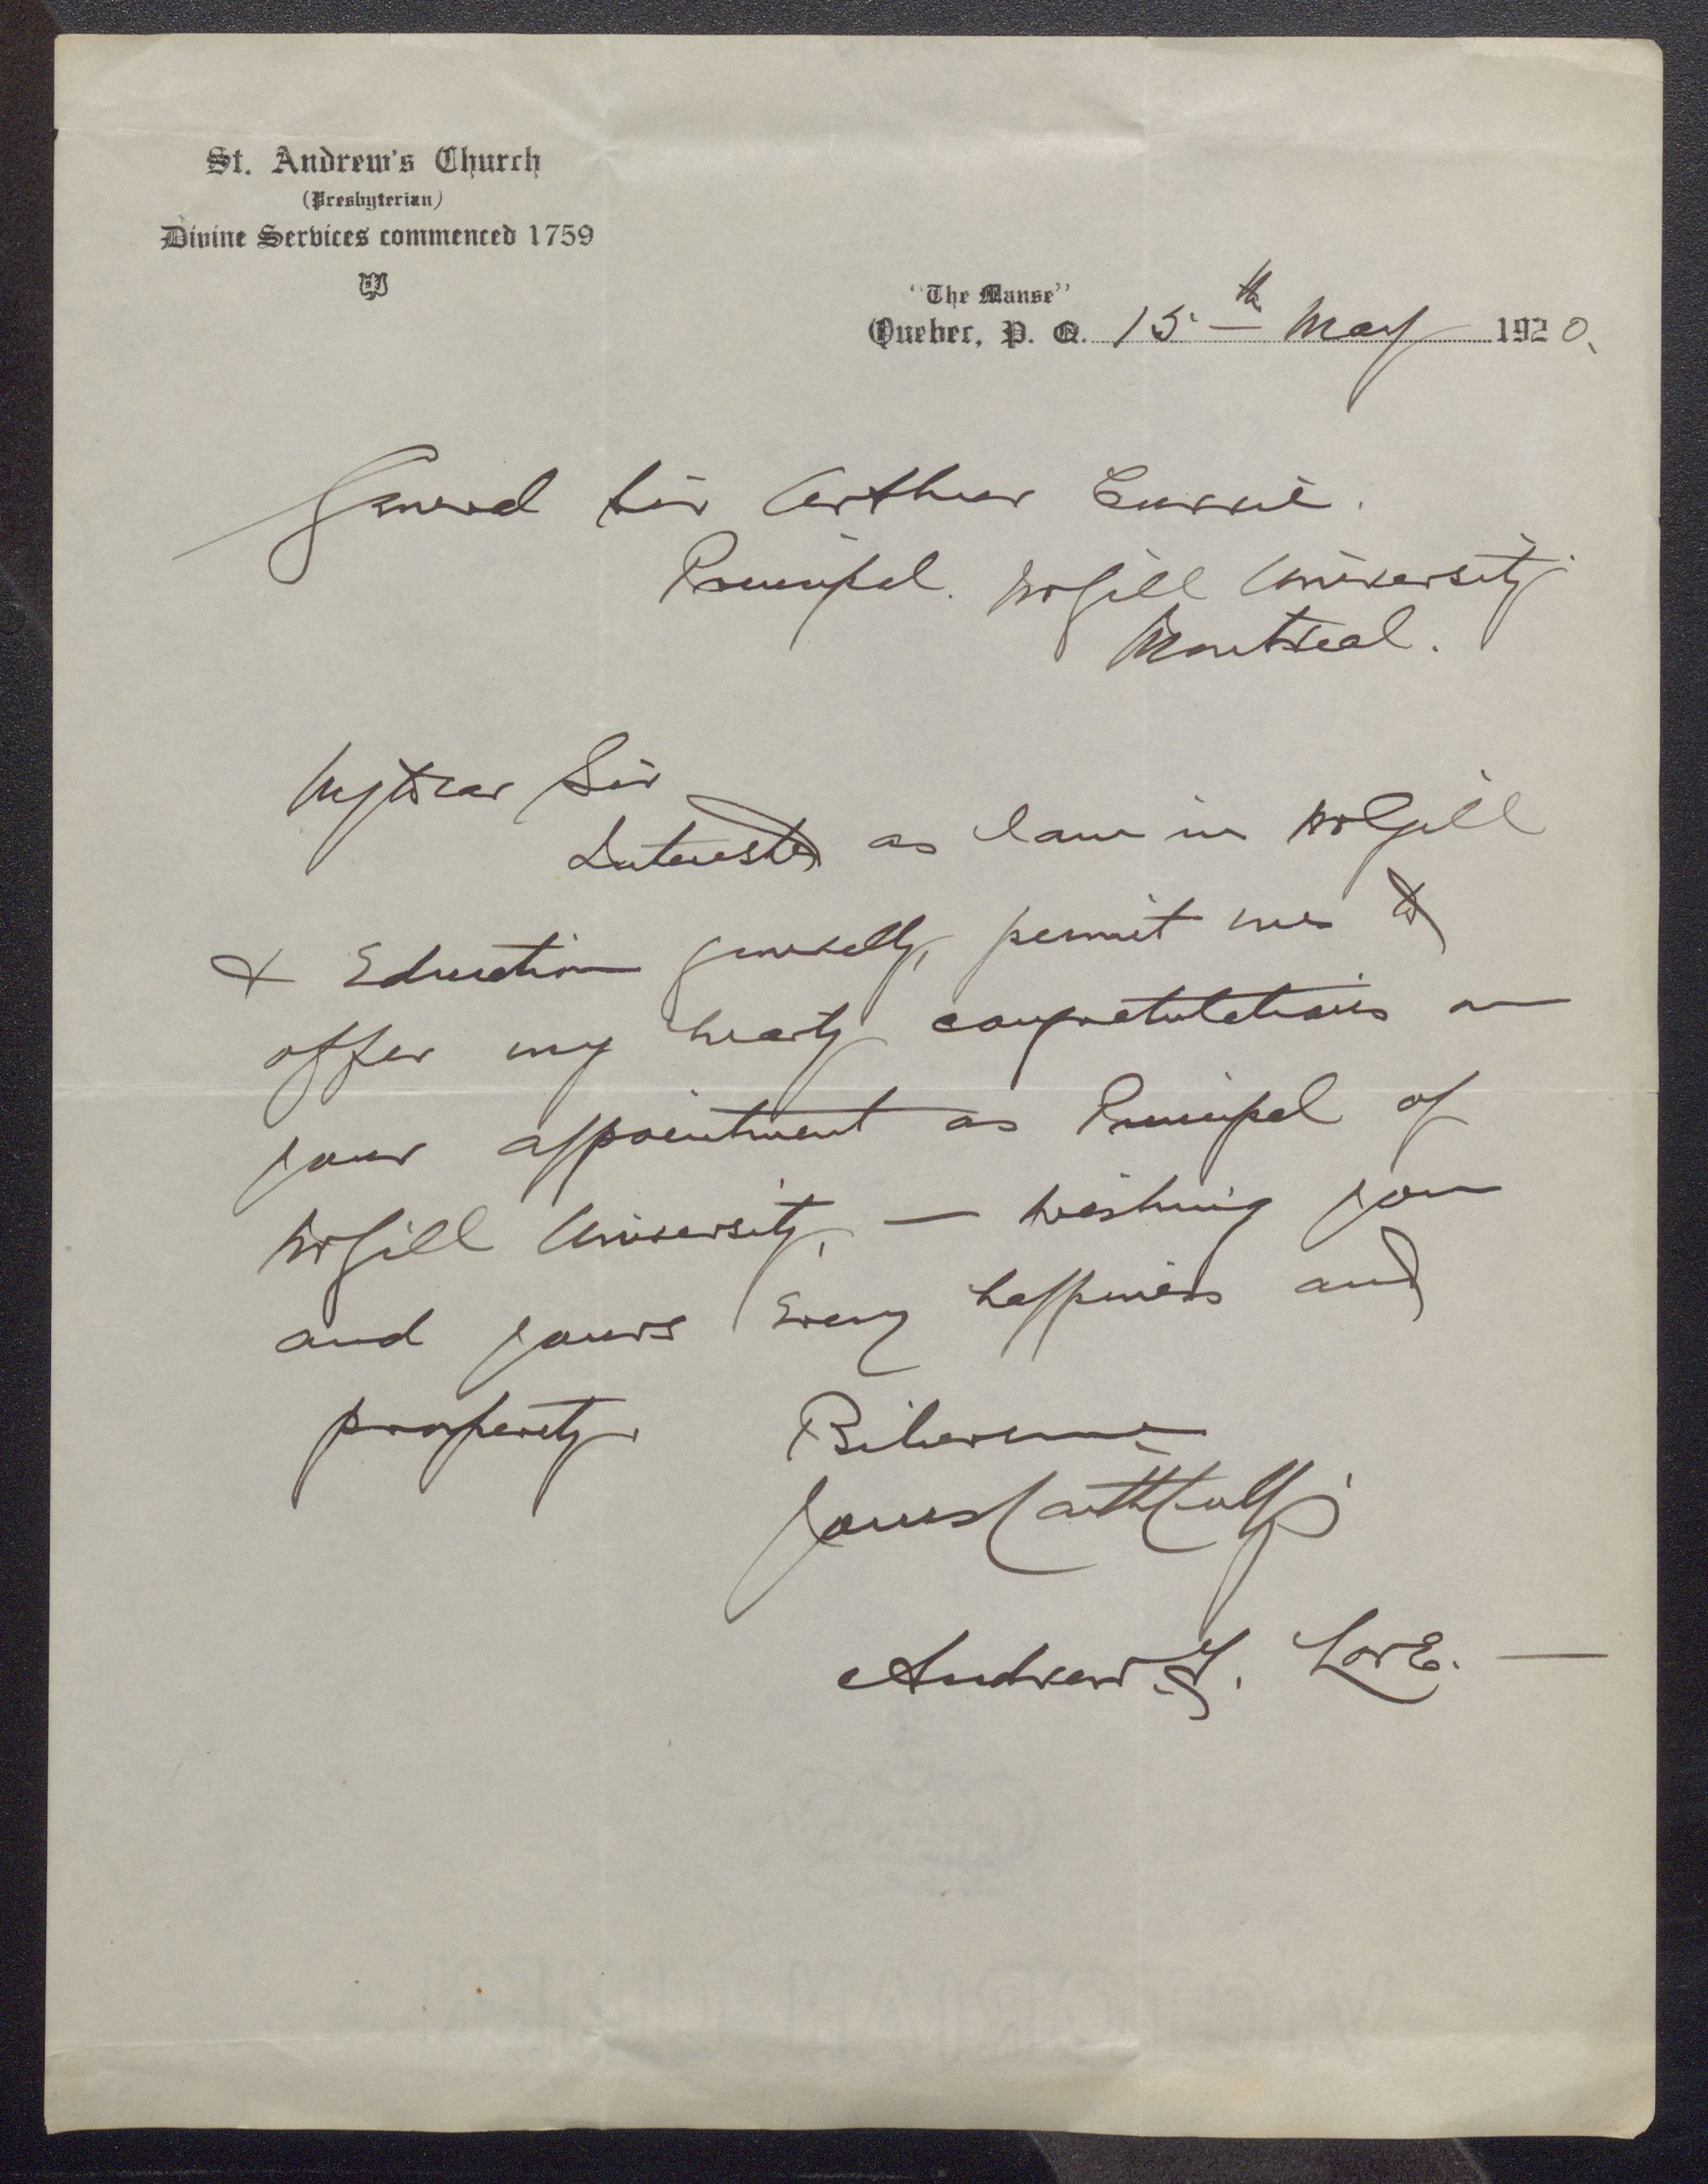 St. Andrew's Church
(Presbyterian)
Divine Services commenced 1759
"The Manse"
Quebec, P. Q. 15th May 1920.
General Sir Arthur Currie.
Principal. McGill University
Montreal.
My dear Sir
Interested as I am in McGill
& Education generally, permit me to
offer my hearty congratulations on
your appointment as Principal of
McGill University, — wishing you
and yours every happiness and
prosperity. Believe me
Yours faithfully
Andrew T. Love. —